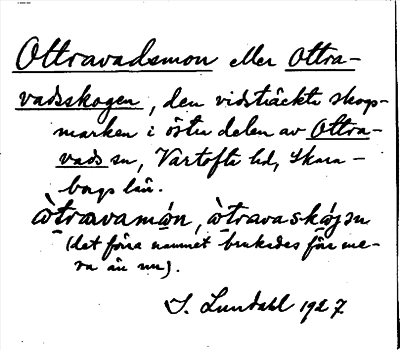 Ottravadsmon eller Ottra-
vadsskogen, den vidsträckta skogs-
marken i östra delen av Ottra-
vads sn, Vartofta hd, Skara-
borgs län.
òtravamón, òtravaskójən
(det förra namnet brukades förr me-
ra än nu).
I. Lundahl 1927.